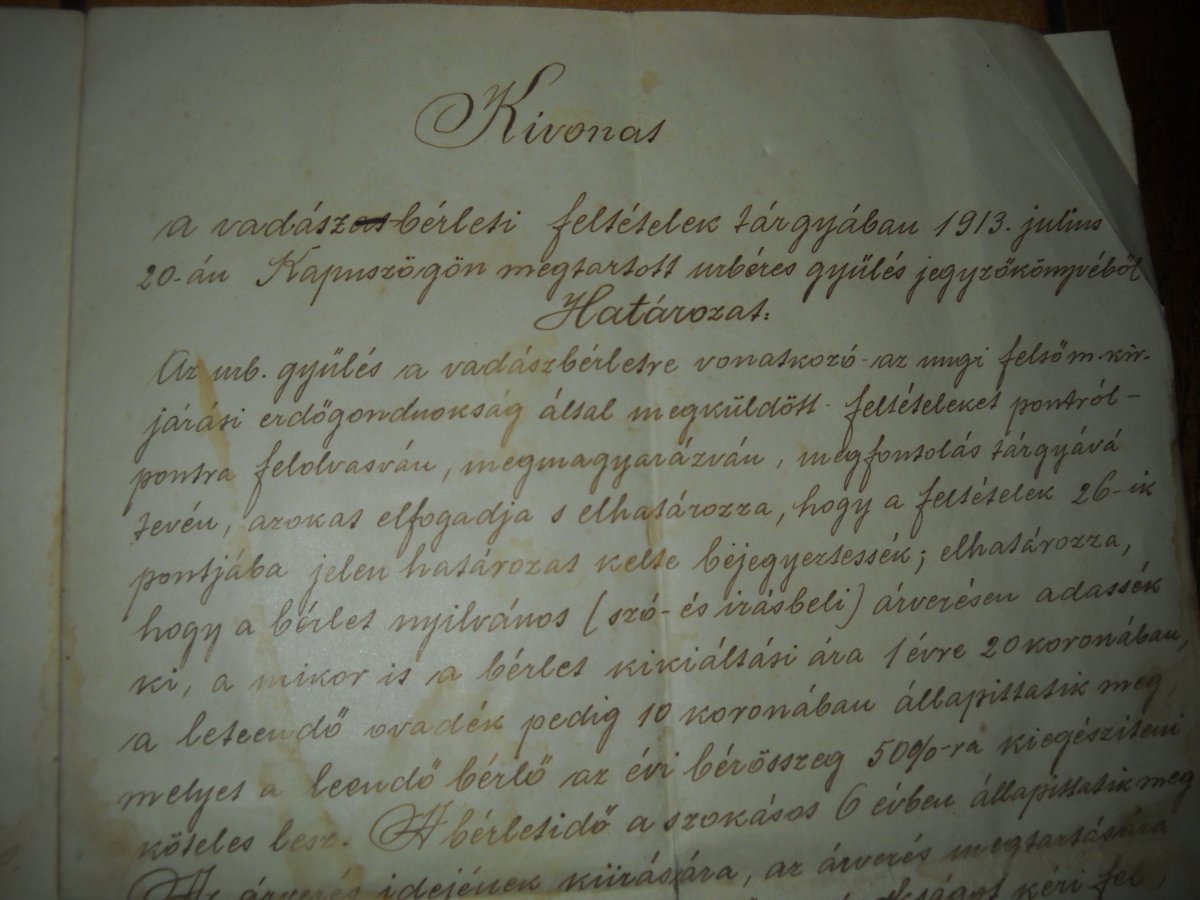 Kivonat
a vadász bérleti feltételek tárgyában 1913. július
20-án Kapuszögön megtartott urbéres gyűlés jegyzőkönyvéből
Határozat:
Az urb. gyűlés a vadászbérletre vonatkozó az ungi felsőm. kir.
járási erdőgondnokság által megküldött feltételeket pontról-
pontra felolvasván, megmagyarázván, megfontolás tárgyává
tevén, azokat elfogadja s elhatározza, hogy a feltételek 26-ik
pontjába jelen határozat kelte bejegyeztessék; elhatározza,
hogy a bérlet nyilvános (szó- és irásbeli) árverésen adassék
ki, a mikor is a bérlet kikiáltási ára 1 évre 20 koronában,
a leteendő ovadék pedig 10 koronában állapittatik meg,
melyet a leendő bérlő az évi bérösszeg 50%-ra kiegésziteni
köteles lesz. A bérletidő a szokásos 6 évben állapittatik meg
Az árverés idejének kiirására, az árverés megtartására
kéri fel,